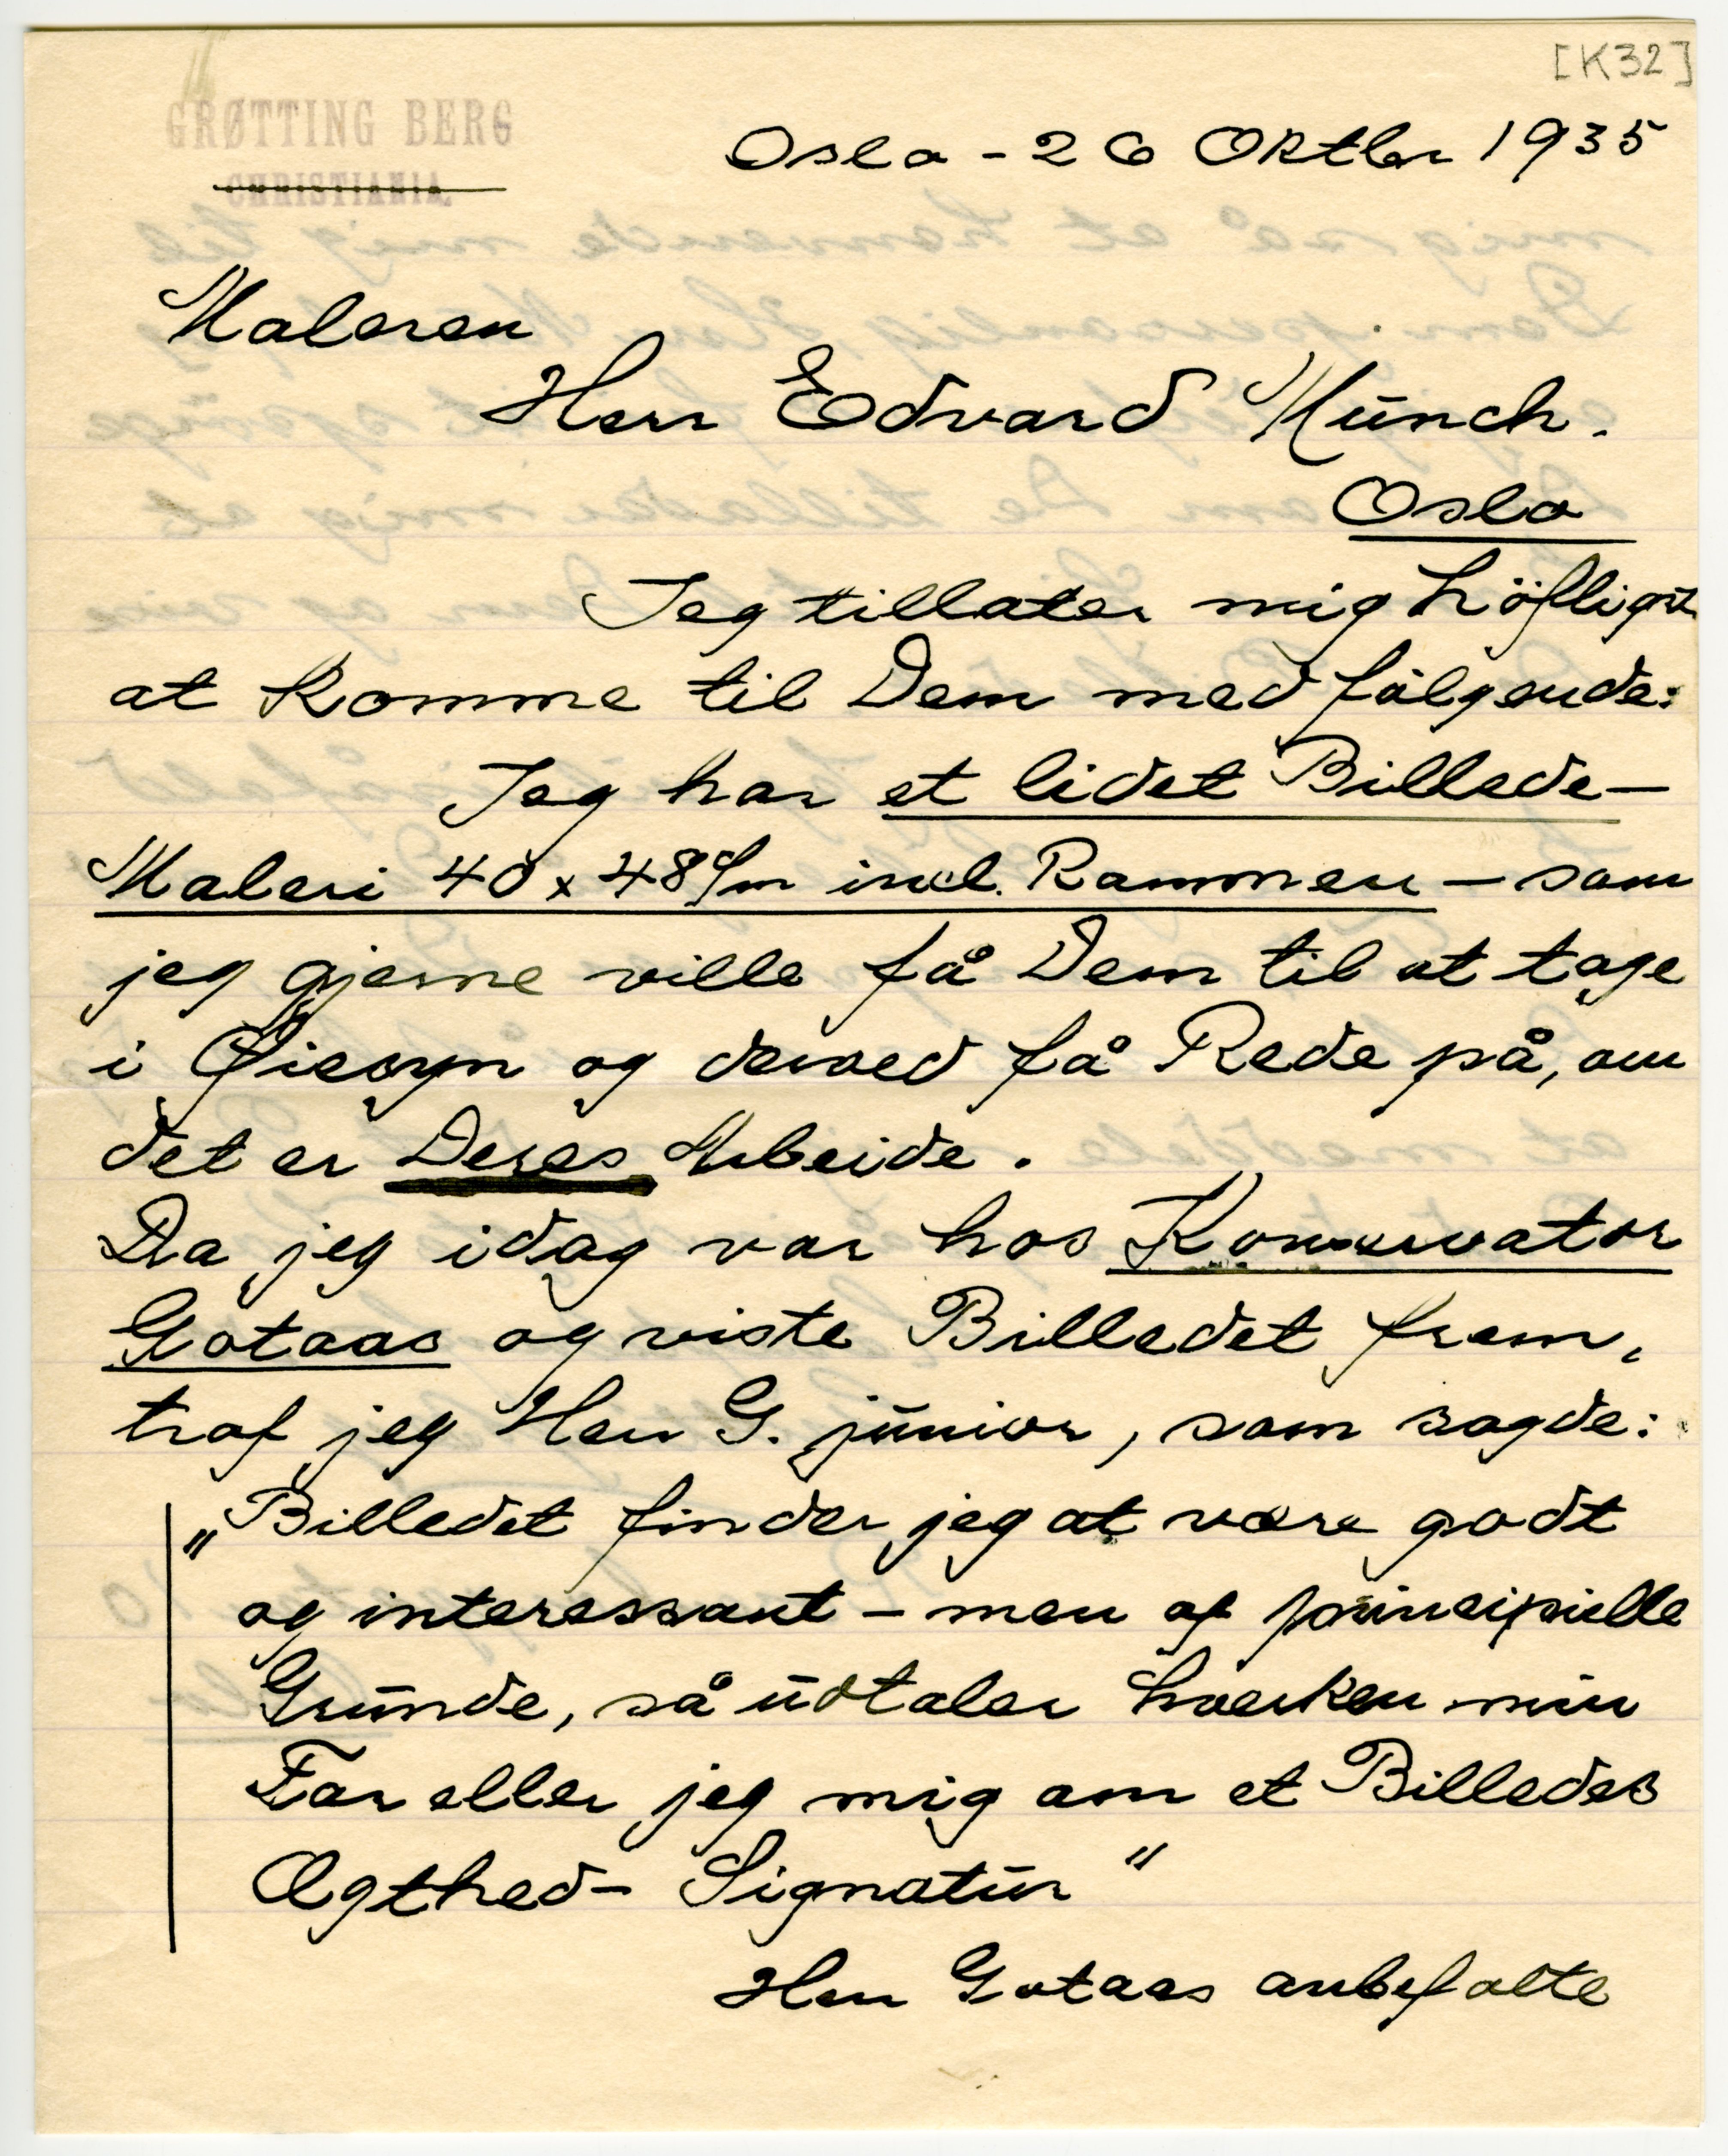 [K32]
GRØTTING BERG
CHRISTIANIA.
Oslo - 26 Oktbr 1935
Maleren
Herr Edvard Münch.
Oslo
Jeg tillater mig höfligst
at komme til Dem med följende:
Jeg har et lidet Billede –
Maleri 40 x 48 c/m incl. Rammen – som
jeg gjerne ville få Dem til at tage
i Øiesyn og derved få Rede på, om
det er Deres Arbeide.
Da jeg idag var hos Konservator
Gotaas og viste Billedet frem,
traf jeg Herr G. junior, som sagde:
„Billedet finder jeg at være godt
og interessant – men af principielle
Grunde, så udtaler hverken min
Far eller jeg mig om et Billedes
Ægthed – Signatur"
Herr Gotaas anbefalte